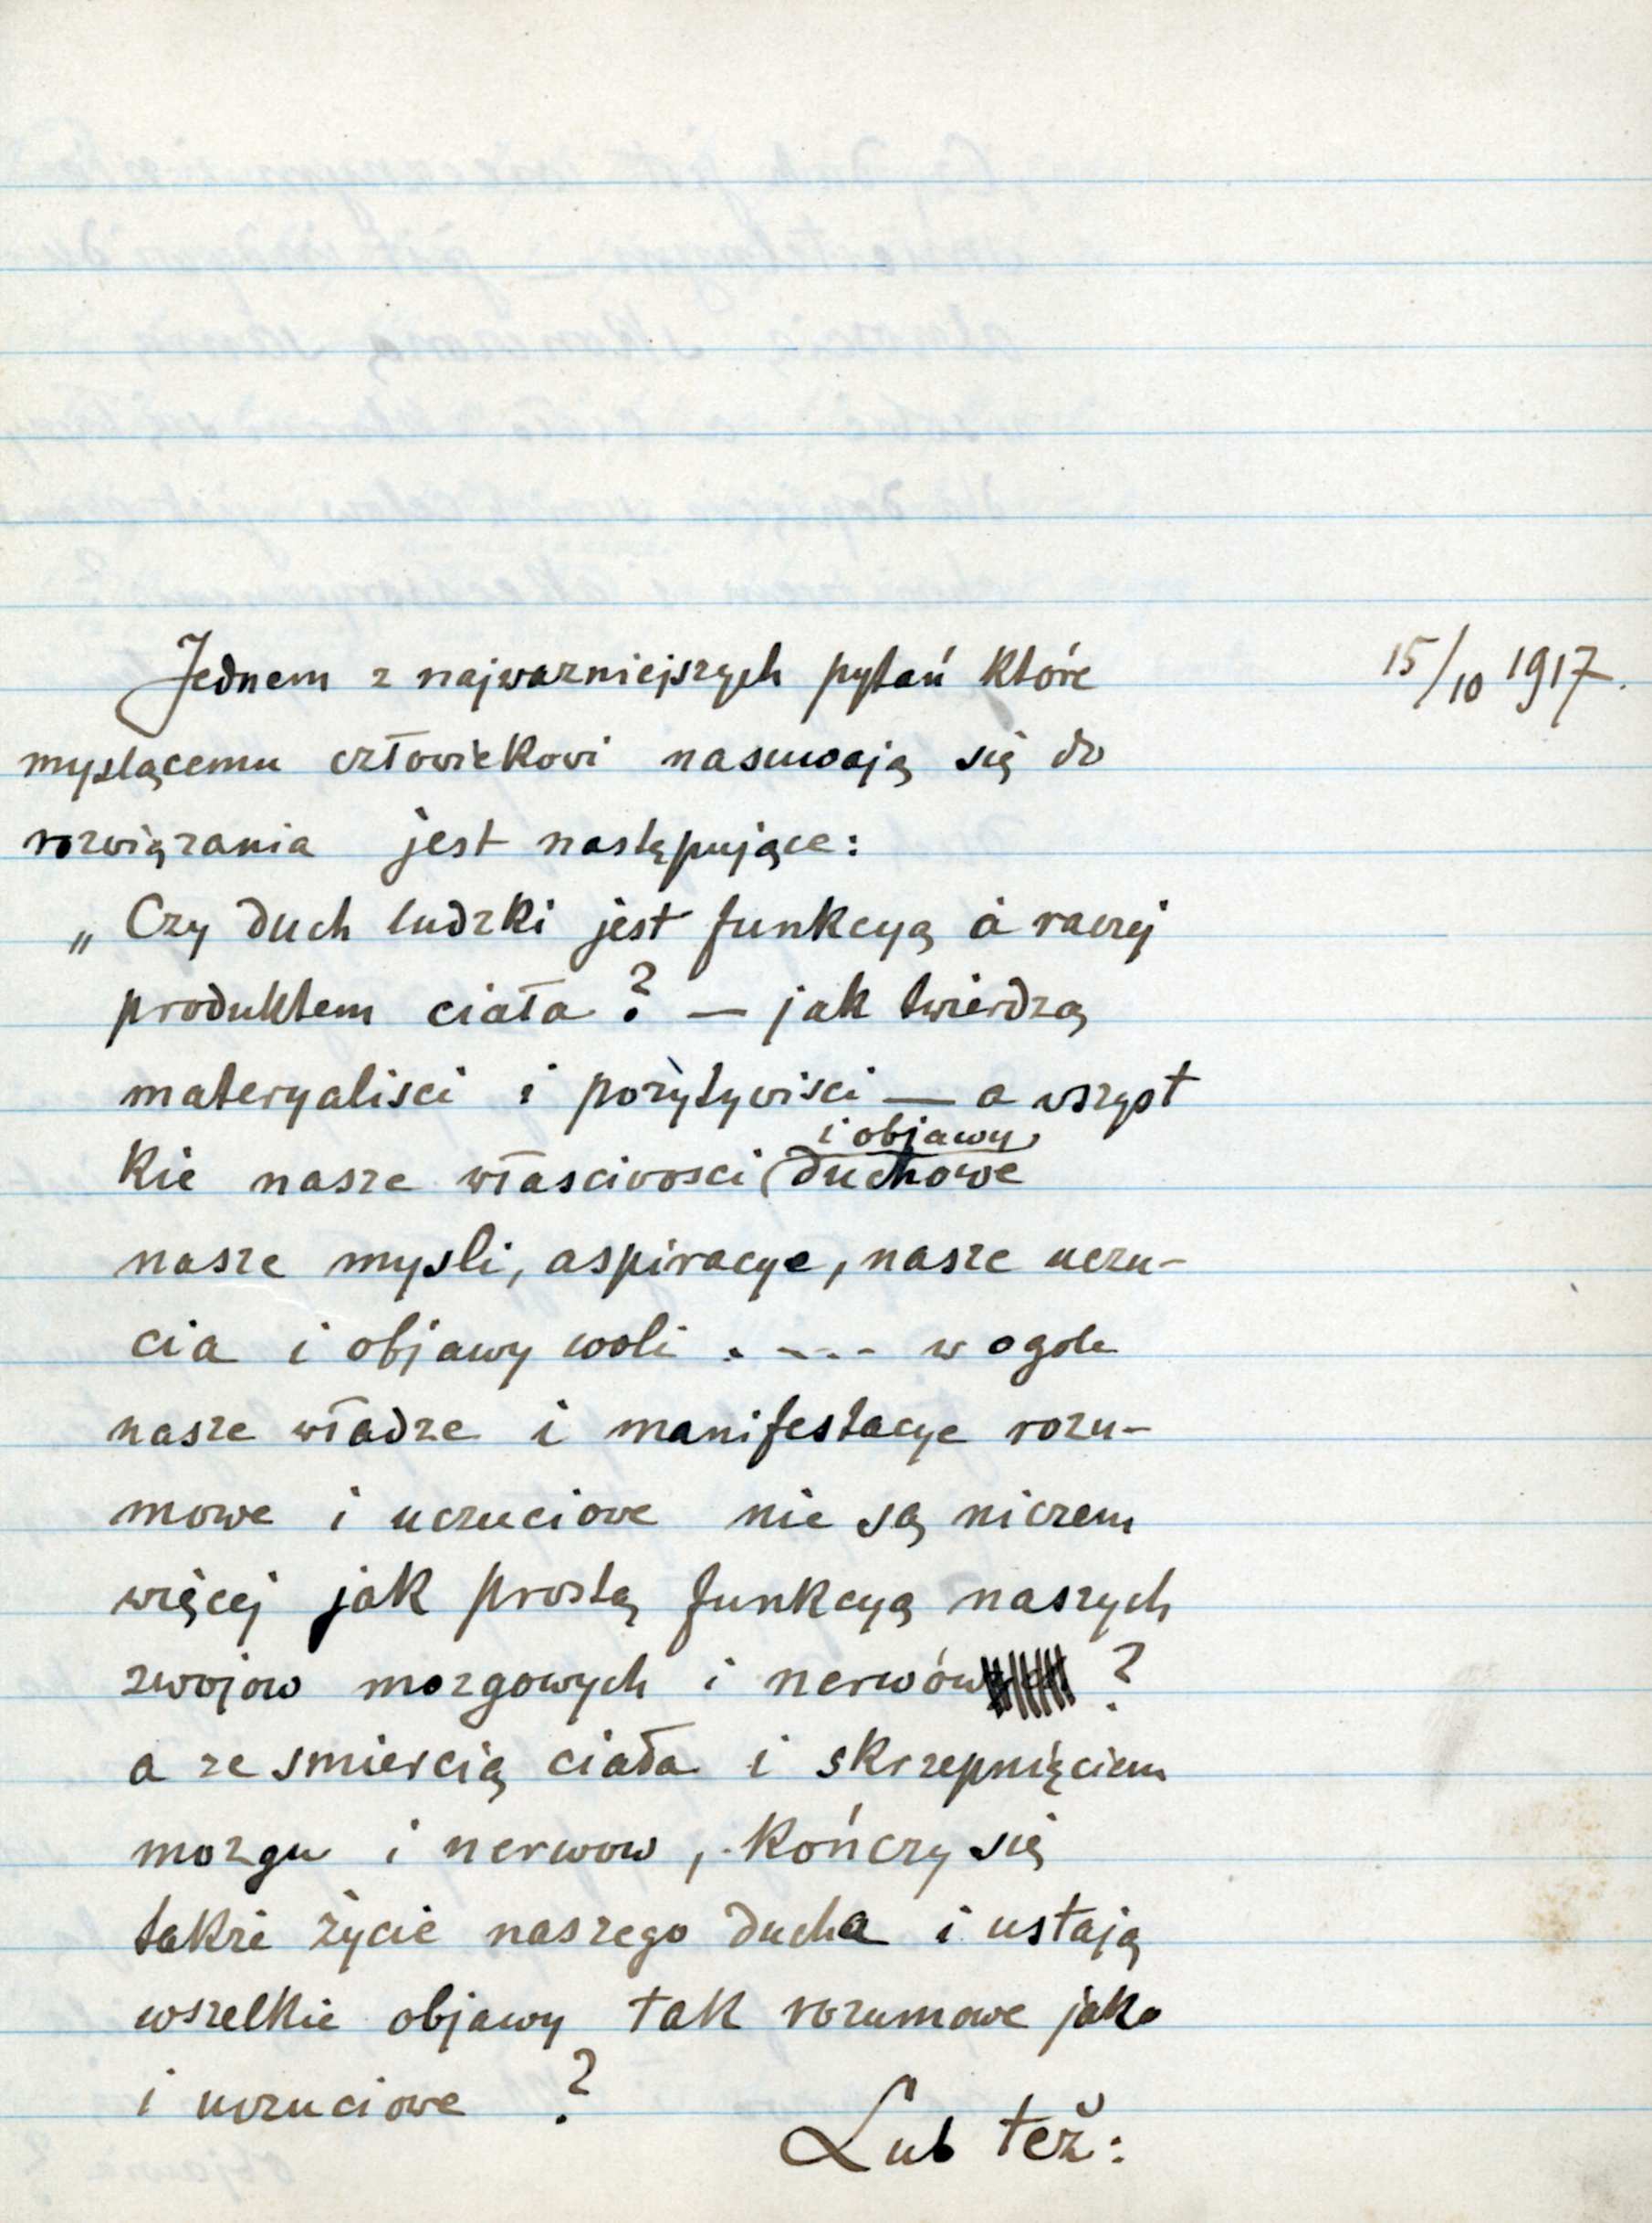 Jednem z najwazniejszych pytań które
15/10 1917.
myslącemu człowiekowi nasuwają się do
rozwiązania jest następujące:
„Czy duch ludzki jest funkcyą a raczej
produktem ciała? — jak twierdzą
materyalisci i pozytywisci — a wszyst
i objawy
kie nasze własciwosci duchowe
nasze mysli, aspiracye, nasze uczu-
cia i objawy woli . - - . - w ogole
nasze władze i manifestacye rozu-
mowe i uczuciowe nie są niczem
więcej jak prostą funkcyą naszych
zwojow mozgowych i nerwów ?
a ze smiercią ciała i skrzepnięciem
mozgu i nerwow, kończy się
takze życie naszego ducha i ustają
wszelkie objawy tak rozumowe jako
i uczuciowe ?
Lub też: